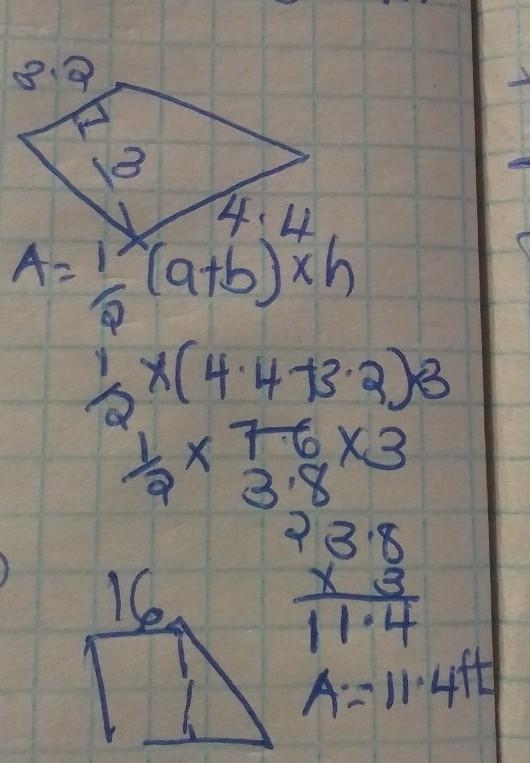 3.2
3
4.4
A = 1/2 (a+b) × h
1/2 × (4.4+3.2)×3
1/2 × 7.6 × 3
3.8
2 3.8
× 3
11.4
A = 11.4ft
16